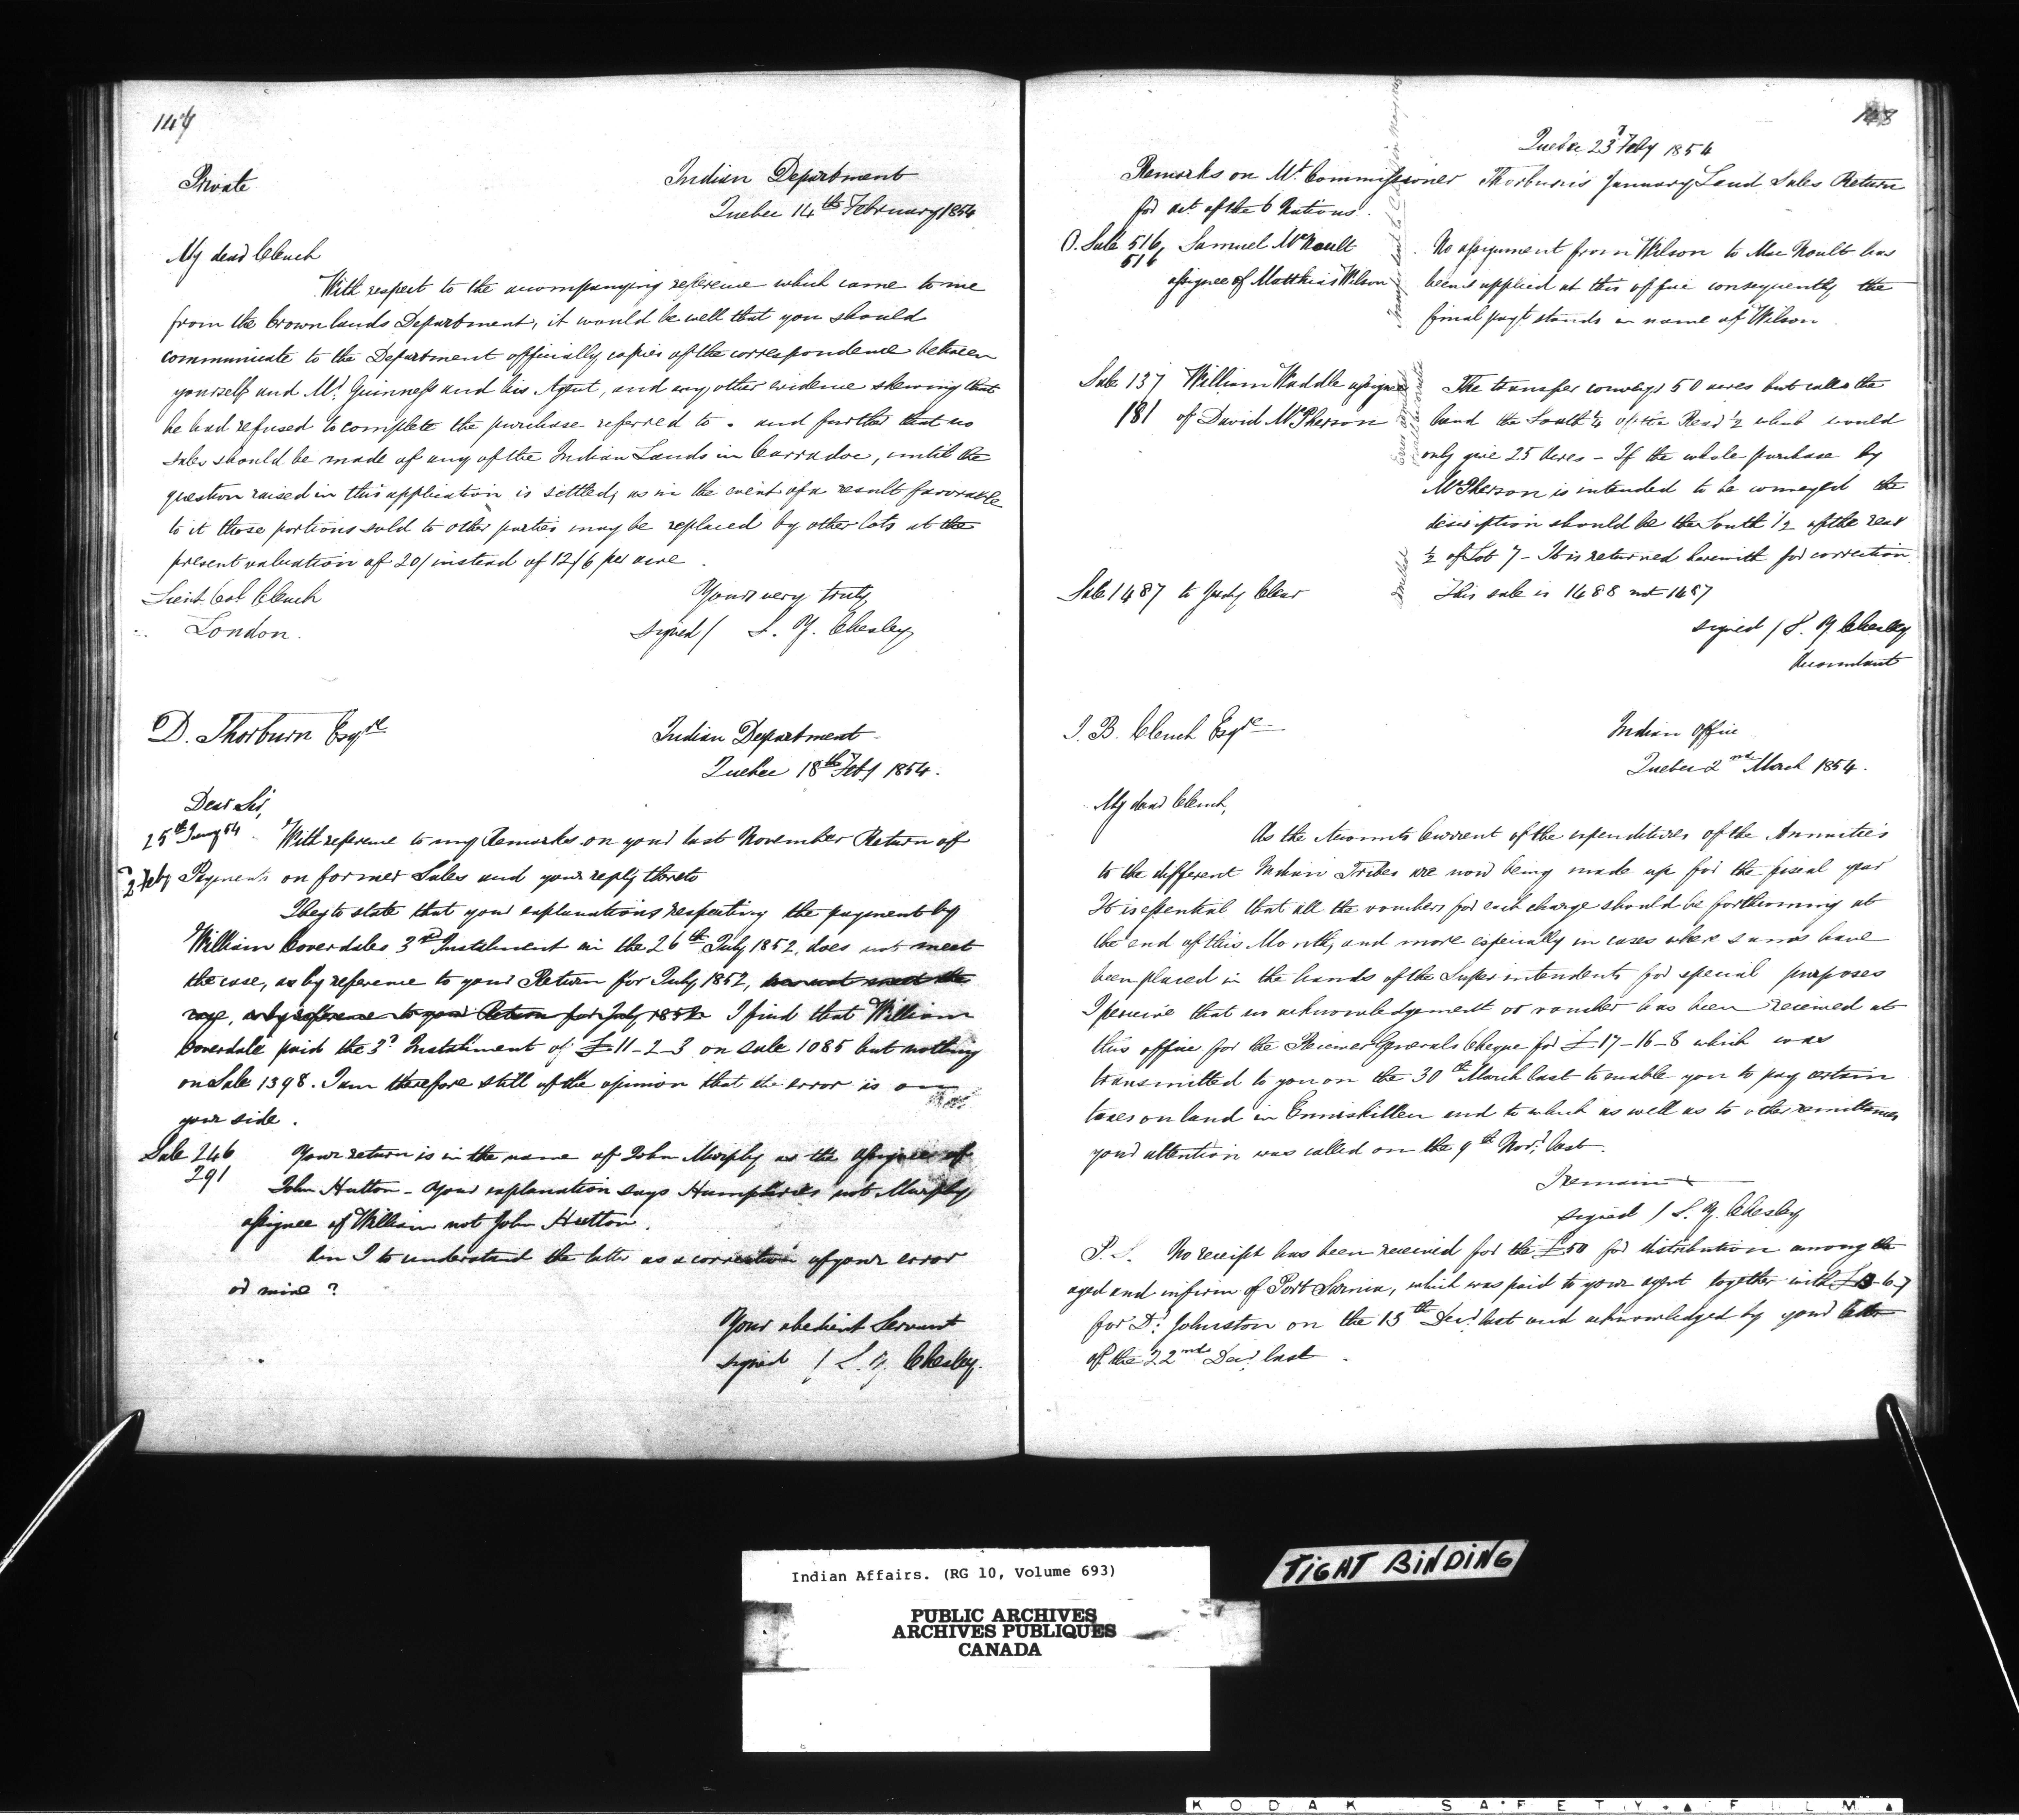 147
Private
Indian Department
Quebec 14th February 1854
My dear Clench
With respect to the accompanying reference which came to me
from the Crown lands Department, it would be well that you should
communicate to the Department officially copies of the correspondence between
yourself and Mr. Guinness and his Agent, and any other evidence shewing that
he had refused to complete the purchase referred to. and further that no
sales should be made of any of the Indian Lands in Carradoc, until the
question raised in this application is settled, as in the event of a result favorable
to it those portions sold to other parties may be replaced by other lots at the
present valuation of 20/ instead of 12/6 per acre
Lieut. Col Clench
Yours very truly
London.
signed/ S. Y. Chesley
D. Thorburn Esqre
Indian Department
Quebec 18th Feby 1854.
Dear Sir,
25th Jany 54
With reference to my Remarks on your last November Return of
2 Feby
Payments on former Sales and your reply thereto
I beg to state that your explanations respecting the payment by
William Coverdales 3rd Instalment on the 26th July 1852, does not meet
the case, as by reference to your Return for July, 1852, does not meet the
case, as by reference to your Return for July 1852 I find that William
Coverdale paid the 3d Instalment of £11-2-3 on sale 1085 but nothing
on Sale 1398. I am therefore still of the opinion that the error is on
your side.
Sale 246
Your return is in the name of John Murphy as the assignee of
291
John Hutton - Your explanation says Humphries not Murphy,
assignee of William not John Hutton.
Am I to understand the latter as a correction of your error
or mine?
Your obedient Servant
signed / S. Y. Chesley.
148
Quebec 23d Feby 1854
Remarks on Mr. Commissioner Thorburn's January Land Sales Return
for act. of the 6 Nations.
O. Sale 516, Samuel McNoult
No assignment from Wilson to Mac Noult has
516
assignee of Matthias Wilson
been supplied at this office consequently the
final payt stands in name of Wilson
Sale 137 William Waddle assignee
The transfer conveys 50 acres but calls the
181 of David McPherson
land the South 1/4 of the Rear 1/2 which would
only give 25 Acres - If the whole purchase by
McPherson is intended to be conveyed the
description should be the South 1/2 of the rear
1/2 of Lot 7 - It is returned herewith for correction.
Sale 1487 to Judy Clear
This sale is 1488 not 1487
signed / S. Y. Chesley
Accountant
J. B. Clench Esqre
Indian Office
Quebec 2nd March 1854.
My dear Clench,
As the Accounts Current of the expenditures of the Annuities
to the different Indian Tribes are now being made up for the fiscal year
It is essential that all the vouchers for each charge should be forthcoming at
the end of this Month, and more especially in cases where sums have
been placed in the hands of the Superintendents for special purposes
I perceive that no acknowledgement or voucher has been received at
this office for the Receiver Generals Cheque for £17-16-8 which was
transmitted to you on the 30th March last to enable you to pay certain
taxes on land in Enniskillen and to which as well as to other remittances
your attention was called on the 9th Novr. last.
I remain
signed / S. Y. Chesley
P.S. No receipt has been received for the £50 for distribution among the
aged and infirm of Port Sarnia, which was paid to your agent together with
for Dr. Johnston on the 15th Decr. last and acknowledged by your letter
of the 22nd Decr. last.
Indian Affairs. (RG 10, Volume 693)
PUBLIC ARCHIVES
ARCHIVES PUBLIQUES
CANADA
TIGHT BINDING
KODAK SAFETY FILM